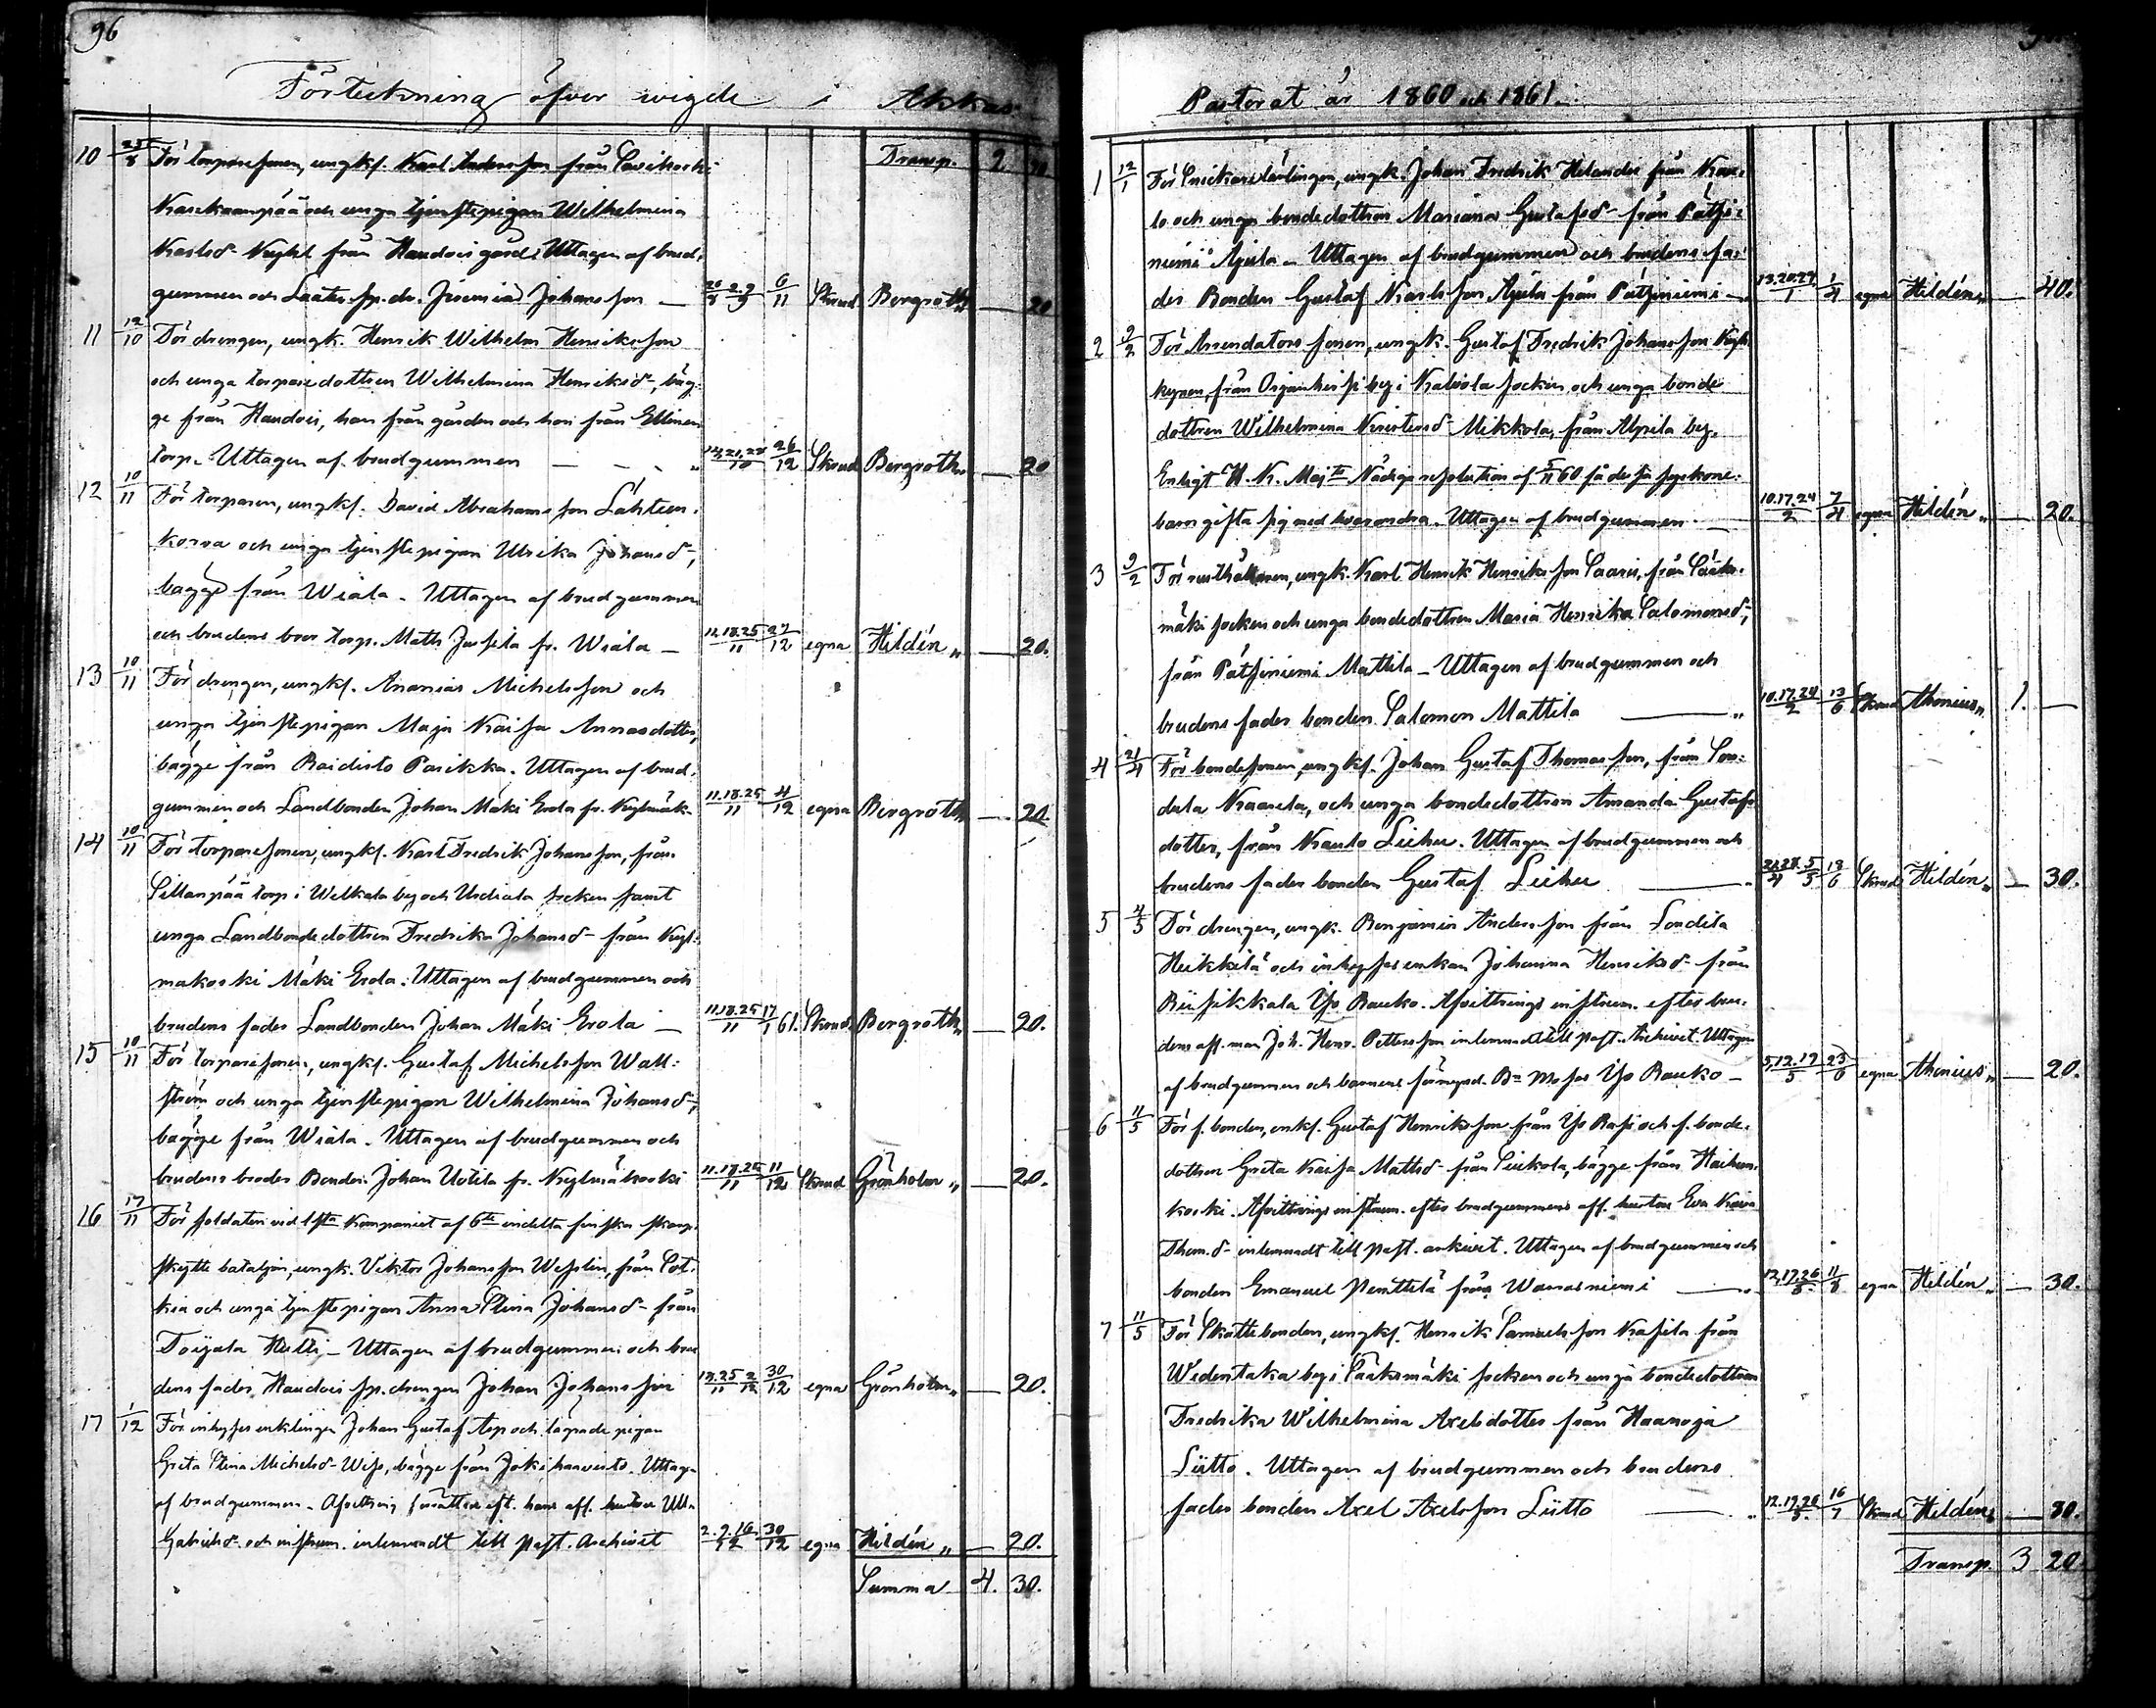 96
Förteckning öfver wigde i Akkas
10 25/8 För torparesonen, ungk. Karl Andersson från
och unga tjenstepigan Wilhelmina
Karlsd- från Haudois gård. Uttagen af brud-
gummen och Johansson — 6/11 Skrud Bergroth „ — 20
Transp. 2
11 12/10 För drengen, ungk. Henrik Wilhelm Henriksson
och unga torparedottren Wilhelmina Henriksd-, bäg-
ge från Haudois, han från gården och hon från Ellinen
torp. Uttagen af brudgummen — 26/12 Skrud Bergroth „ — 20
12 10/11 För torparen, ungk. David Abrahamsson Lähteen-
korva och unga tjenstepigan Ulrika Johansd-,
bägge från Wiala. Uttagen af brudgummen
och brudens bror torp. Matts Jussila fr. Wiala — 11.18.25/11 27/12 egna Hildén „ — 20.
13 10/11 För drengen, ungk. Ananias Michelsson och
unga tjenstepigan Maja Kaisa Annasdotter,
bägge från Parikka. Uttagen af brud-
gummen och Landbonden Johan Mäki Erola fr. Kylmäk- 11.18.25/11 4/12 egna Bergroth „ — 20.
14 10/11 För torparesonen, ungk. Karl Fredrik Johansson, från
Sillanpää torp i Welkala by och Urdiala socken samt
unga Landbondedottren Fredrika Johansd- från Kyl-
mäkoski Mäki Erola. Uttagen af brudgummen och
brudens fader Landbonden Johan Mäki Erola — 11.18.25/11 17/1 61. Skrud Bergroth „ — 20.
15 10/11 För torparesonen, ungk. Gustaf Michelsson Wall-
ström och unga tjenstepigan Wilhelmina Johansd-,
bägge från Wiala. Uttagen af brudgummen och
brudens broder Bonden Johan Uotila fr. Kylmäkoski 11.18.25/11 11/12 Skrud Grönholm „ — 20.
16 17/11 För soldaten vid 1sta Kompaniet af 6te indelta finska skarp-
skytte bataljon, ungk. Viktor Johansson Wesslin, från Sot-
kia och unga tjenstepigan Anna Stina Johansd- från
Toijala Hutti — Uttagen af brudgummen och bru-
dens fader, Haudois sp. drengen Johan Johansson 18.25/11 2/12 30/12 egna Grönholm „ — 20.
17 1/12 För inhyses enklingen Johan Gustaf Asp och lägrade pigan
Greta Stina Michelsd- Wiss, bägge från Jokihaavisto. Uttagen
af brudgummen. Afvittring eft. hans afl. hustru Ulla
Gabrielsd- och instrum. inlemnadt till past. Archivet 2.9.16/12 30/12 egna Hildén „ — 20.
Summa 4. 30.
Pastorat år 1860 och 1861.
1 12/1 För Snickarelärlingen, ungk. Johan Fredrik Helander från Kau-
to och unga bondedottren Mariana Gustafsd- från Pätsi-
niemi Ajula — Uttagen af brudgummen och brudens fa-
der Bonden Gustaf Karlsson Ajula från Pätsiniemi — 13.20.27/1 1/4 egna Hildén „ — 40.
2 9/2 För Arrendatorssonen, ungk. Gustaf Fredrik Johansson
från by i Kalvola socken och unga bonde
dottren Wilhelmina Mikkola, från Alpila by.
Enligt H. K. Maj:ts Nådiga resolution af 5/11 60 få dessa syskone-
barn gifta sig med hvarandra. Uttagen af brudgummen — 10.17.24/2 7/4 egna Hildén „ — 20.
3 9/2 För rusthållaren, ungk. Karl Henrik Henriksson Saaris, från Sääks-
mäki socken och unga bondedottren Maria Henrika Salomonsd-,
från Pätsiniemi Mattila — Uttagen af brudgummen och
brudens fader bonden Salomon Mattila — „ 10.17.24/2 13/6 Skrud Thenius „ 1. —
4 21/4 För bondesonen, ungk. Johan Gustaf Thomasson, från Son-
dala Kaarela, och unga bondedottren Amanda Gustafs
dotter, från Kauto Liehu. Uttagen af brudgummen och
brudens fader bonden Gustaf Liehu — „ 21.28/4 5/5 13/6 Skrud Hildén „ — 30.
5 4/5 För drengen, ungk. Benjamin Andersson från Sondila
Heikkilä och inhyses enkan Johanna Henriksd- från
Yso Rauko. Afvittrings instrum. efter bru-
dens afl. man Joh. Henr. Pettersson inlemnadt till past. Archivet. Uttagen
af brudgummen och barnens förmynd. Yso Rauko — 5.12.19/5 23/6 egna Thenius „ — 20.
6 11/5 För f. bonden, enkl. Gustaf Henriksson från Yso Rasi och f. bonde-
dottren Greta Kaisa Mattsd- från bägge från Haihun-
koski. Afvittrings instrum. efter brudgummens afl. hustru Eva Kaisa
Thom.d- inlemnadt till past. arkivet. Uttagen af brudgummen och
bonden Emanuel Penttilä från Warrasniemi — „ 12.19.26/5 11/8 egna Hildén „ — 30.
7 11/5 För Skattebonden, ungk. Henrik Samuelsson Kasila från
by i Sääksmäki socken och unga bondedottren
Fredrika Wilhelmina Axelsdotter från Haanoja
Liitto. Uttagen af brudgummen och brudens
fader bonden Axel Axelsson Liitto — „ 12.19.26/5 16/7 Skrud Hildén „ — 30.
Transp. 3 20